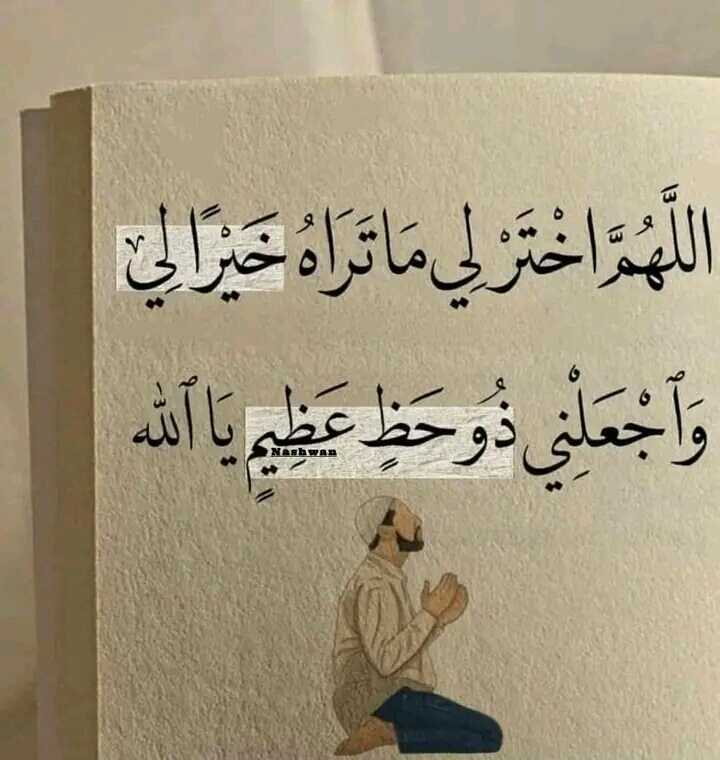 اللَّهُمَّ اخْتَرْ لِي مَا تَرَاهُ خَيْرًا لِي
وَٱجْعَلْنِي ذُو حَظٍ عَظِيمٍ يَا ٱللّٰه
Nashwan